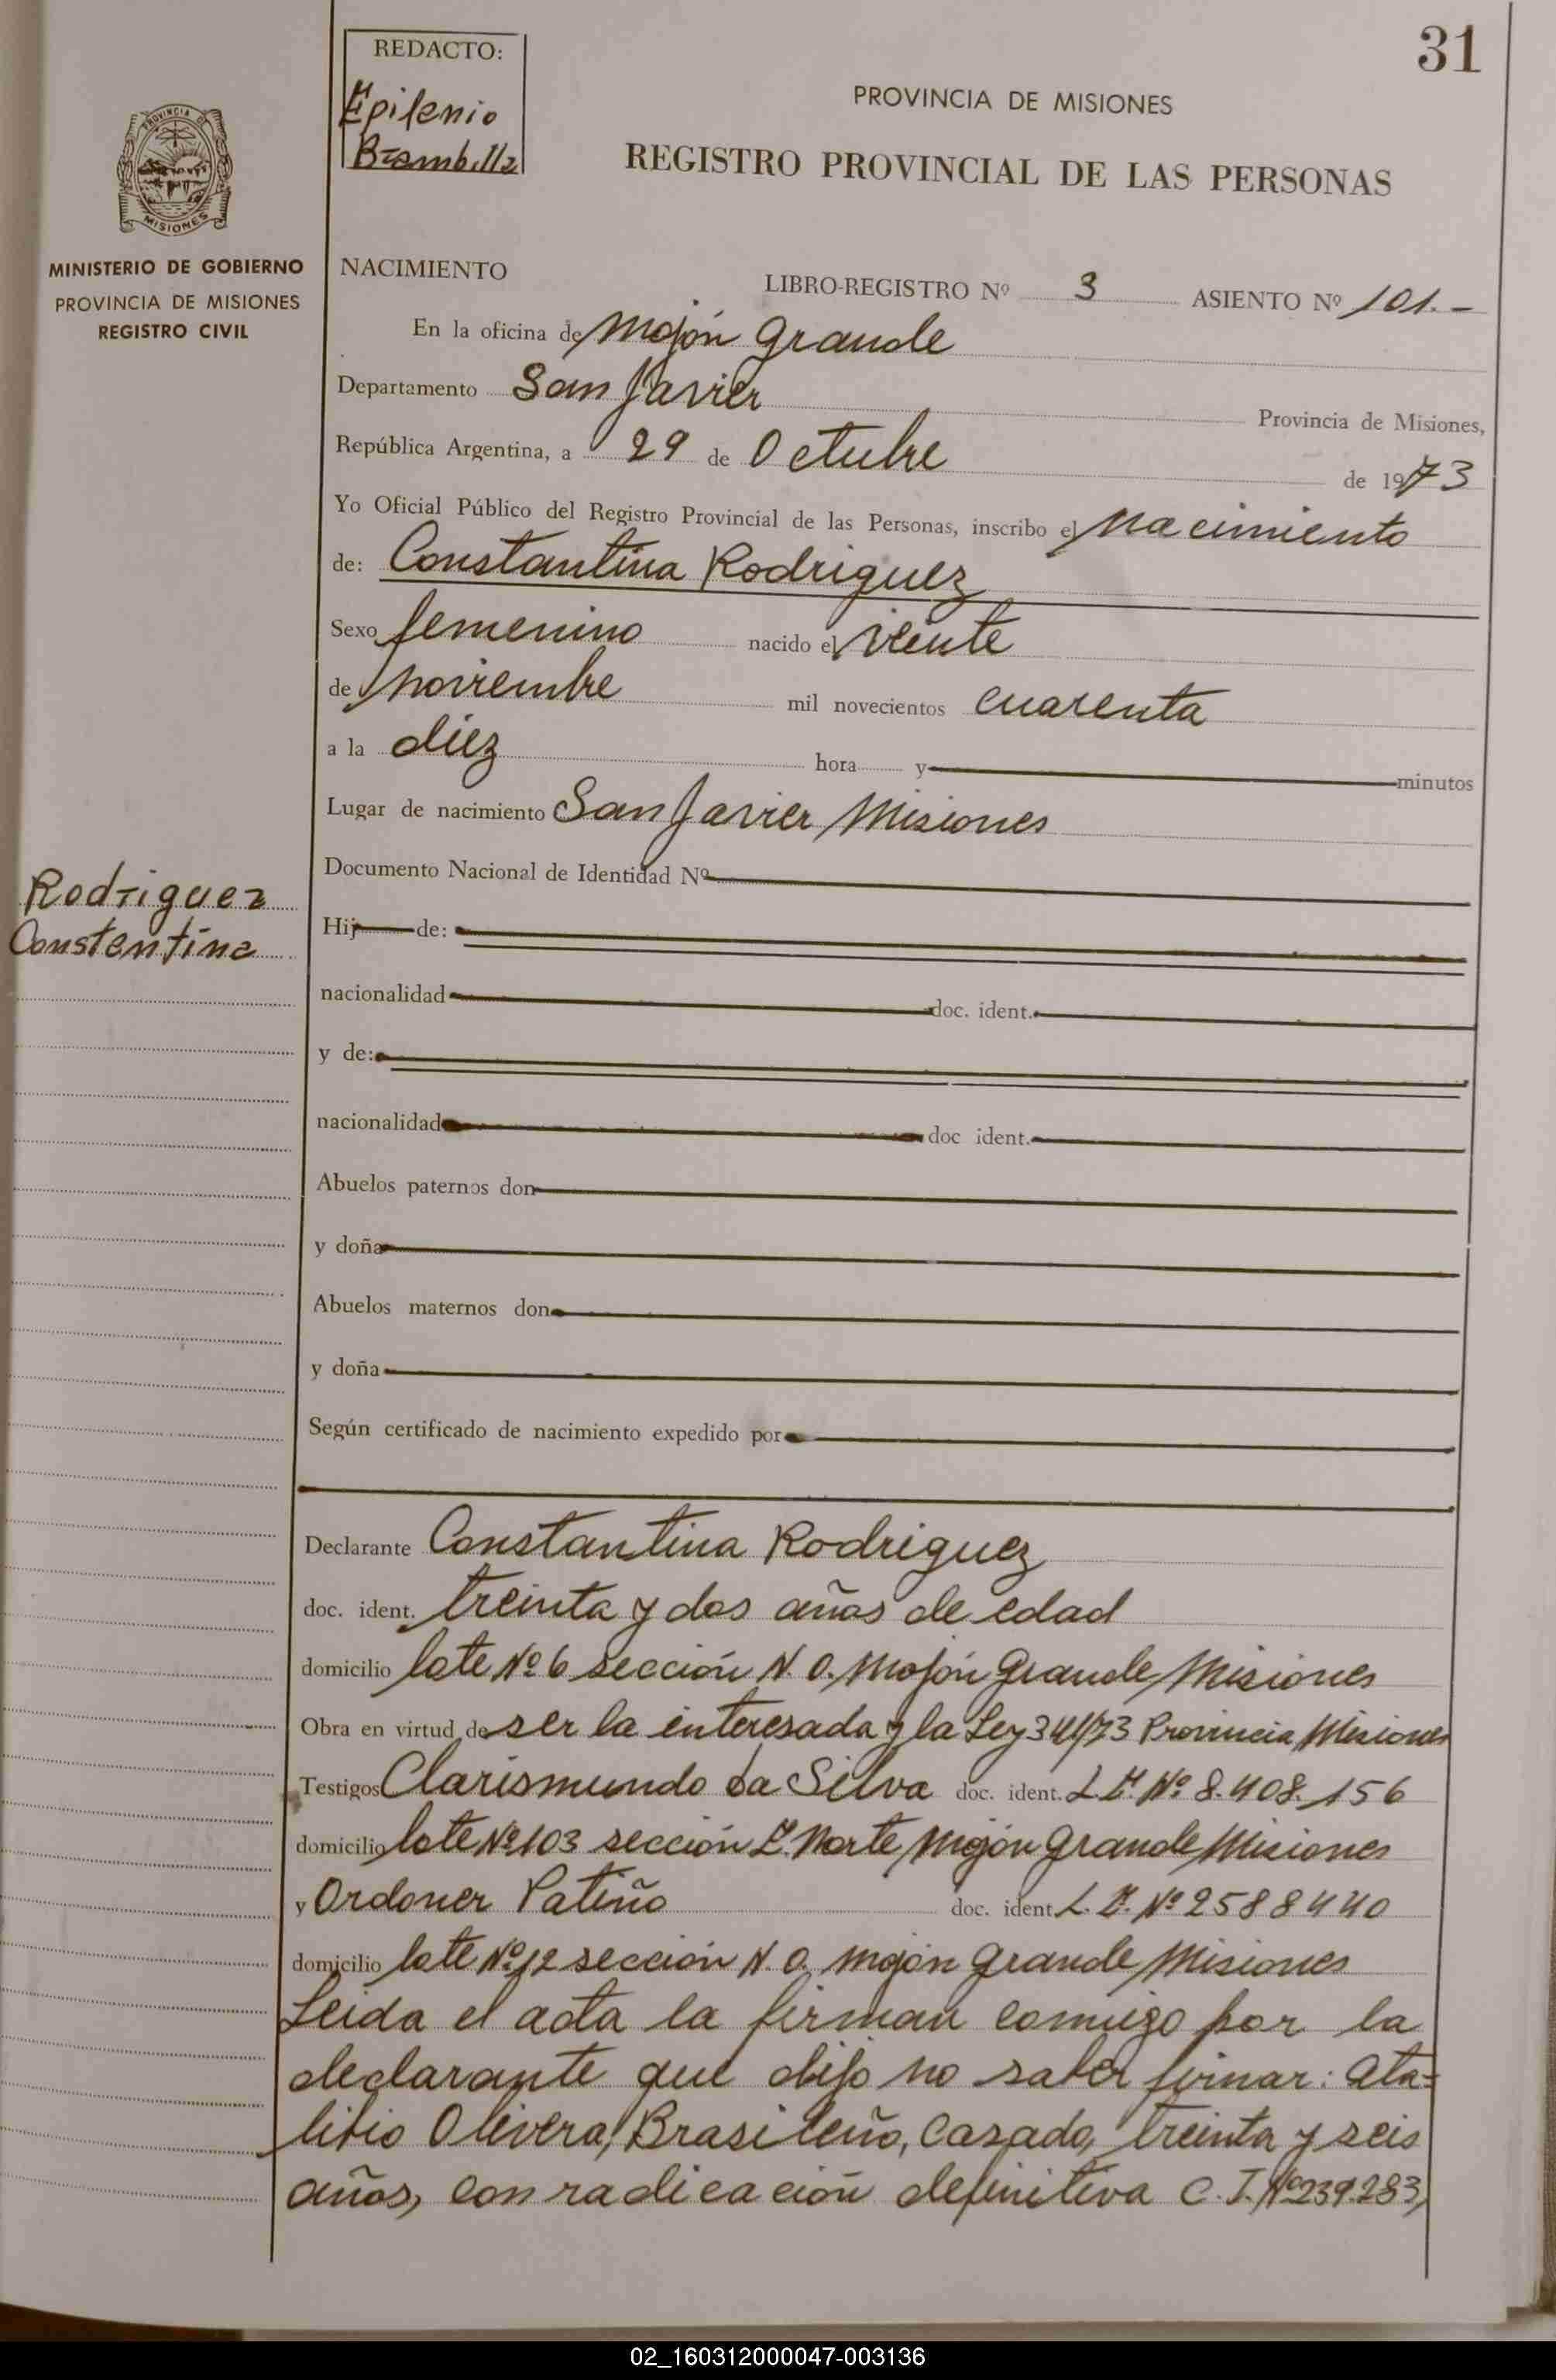 31
REDACTO:
Epifenio
Brambilla
PROVINCIA DE MISIONES
REGISTRO PROVINCIAL DE LAS PERSONAS
PROVINCIA DE
MISIONES
MINISTERIO DE GOBIERNO
PROVINCIA DE MISIONES
REGISTRO CIVIL
NACIMIENTO
LIBRO-REGISTRO Nº 3 ASIENTO Nº 101.-
En la oficina de Mojón Grande
Departamento San Javier Provincia de Misiones,
República Argentina, a 29 de Octubre de 1973
Yo Oficial Público del Registro Provincial de las Personas, inscribo el nacimiento
de: Constantina Rodriguez
Sexo femenino nacido el veinte
de noviembre mil novecientos cuarenta
a la diez hora y minutos
Lugar de nacimiento San Javier Misiones
Documento Nacional de Identidad Nº
Rodriguez
Constantina
Hij de:
nacionalidad doc. ident.
y de:
nacionalidad doc ident.
Abuelos paternos don
y doña
Abuelos maternos don
y doña
Según certificado de nacimiento expedido por
Declarante Constantina Rodriguez
doc. ident. treinta y dos años de edad
domicilio lote Nº 6 sección N. O. Mojón Grande Misiones
Obra en virtud de ser la interesada y la Ley 341/73 Provincia Misiones
Testigos Clarismundo da Silva doc. ident. L E. Nº 8.408.156
domicilio lote Nº 103 sección L. Norte Mojón Grande Misiones
y Ordoner Patiño doc. ident L. E. Nº 2588440
domicilio lote Nº 12 sección N. O. Mojón Grande Misiones
Leida el acta la firman comigo por la
declarante que dijo no saber firmar: Ata=
libio Olivera, Brasileño, Casado, treinta y seis
años, con radicación definitiva C. I. Nº 239.283,
02_160312000047-003136